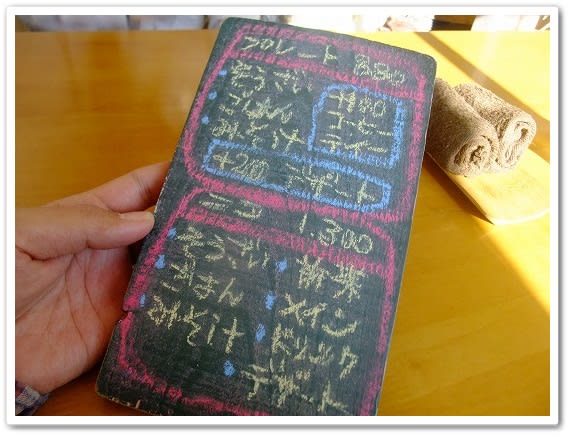 プレート 880
・そうざい
・ごはん
・みそ汁
+180
コーヒー
ティー
+200 デザート
ニコ 1,300
・そうざい
・ごはん
・みそ汁
・前菜
・メイン
・ドリンク
・デザート